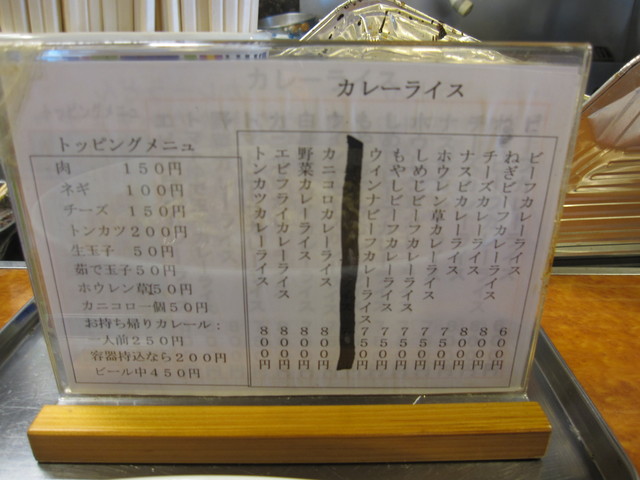 カレーライス
ビーフカレーライス 600円
ねぎビーフカレーライス 800円
チーズカレーライス 800円
ナスビカレーライス 750円
ホウレン草カレーライス 750円
しめじビーフカレーライス 750円
もやしビーフカレーライス 750円
ウィンナビーフカレーライス 750円
カニコロカレーライス 800円
野菜カレーライス 800円
エビフライカレーライス 800円
トンカツカレーライス 800円
トッピングメニュー
肉 150円
ネギ 100円
チーズ 150円
トンカツ200円
生玉子 50円
茹で玉子50円
ホウレン草50円
カニコロ一個50円
お持ち帰りカレール:
一人前250円
容器持込なら200円
ビール中450円